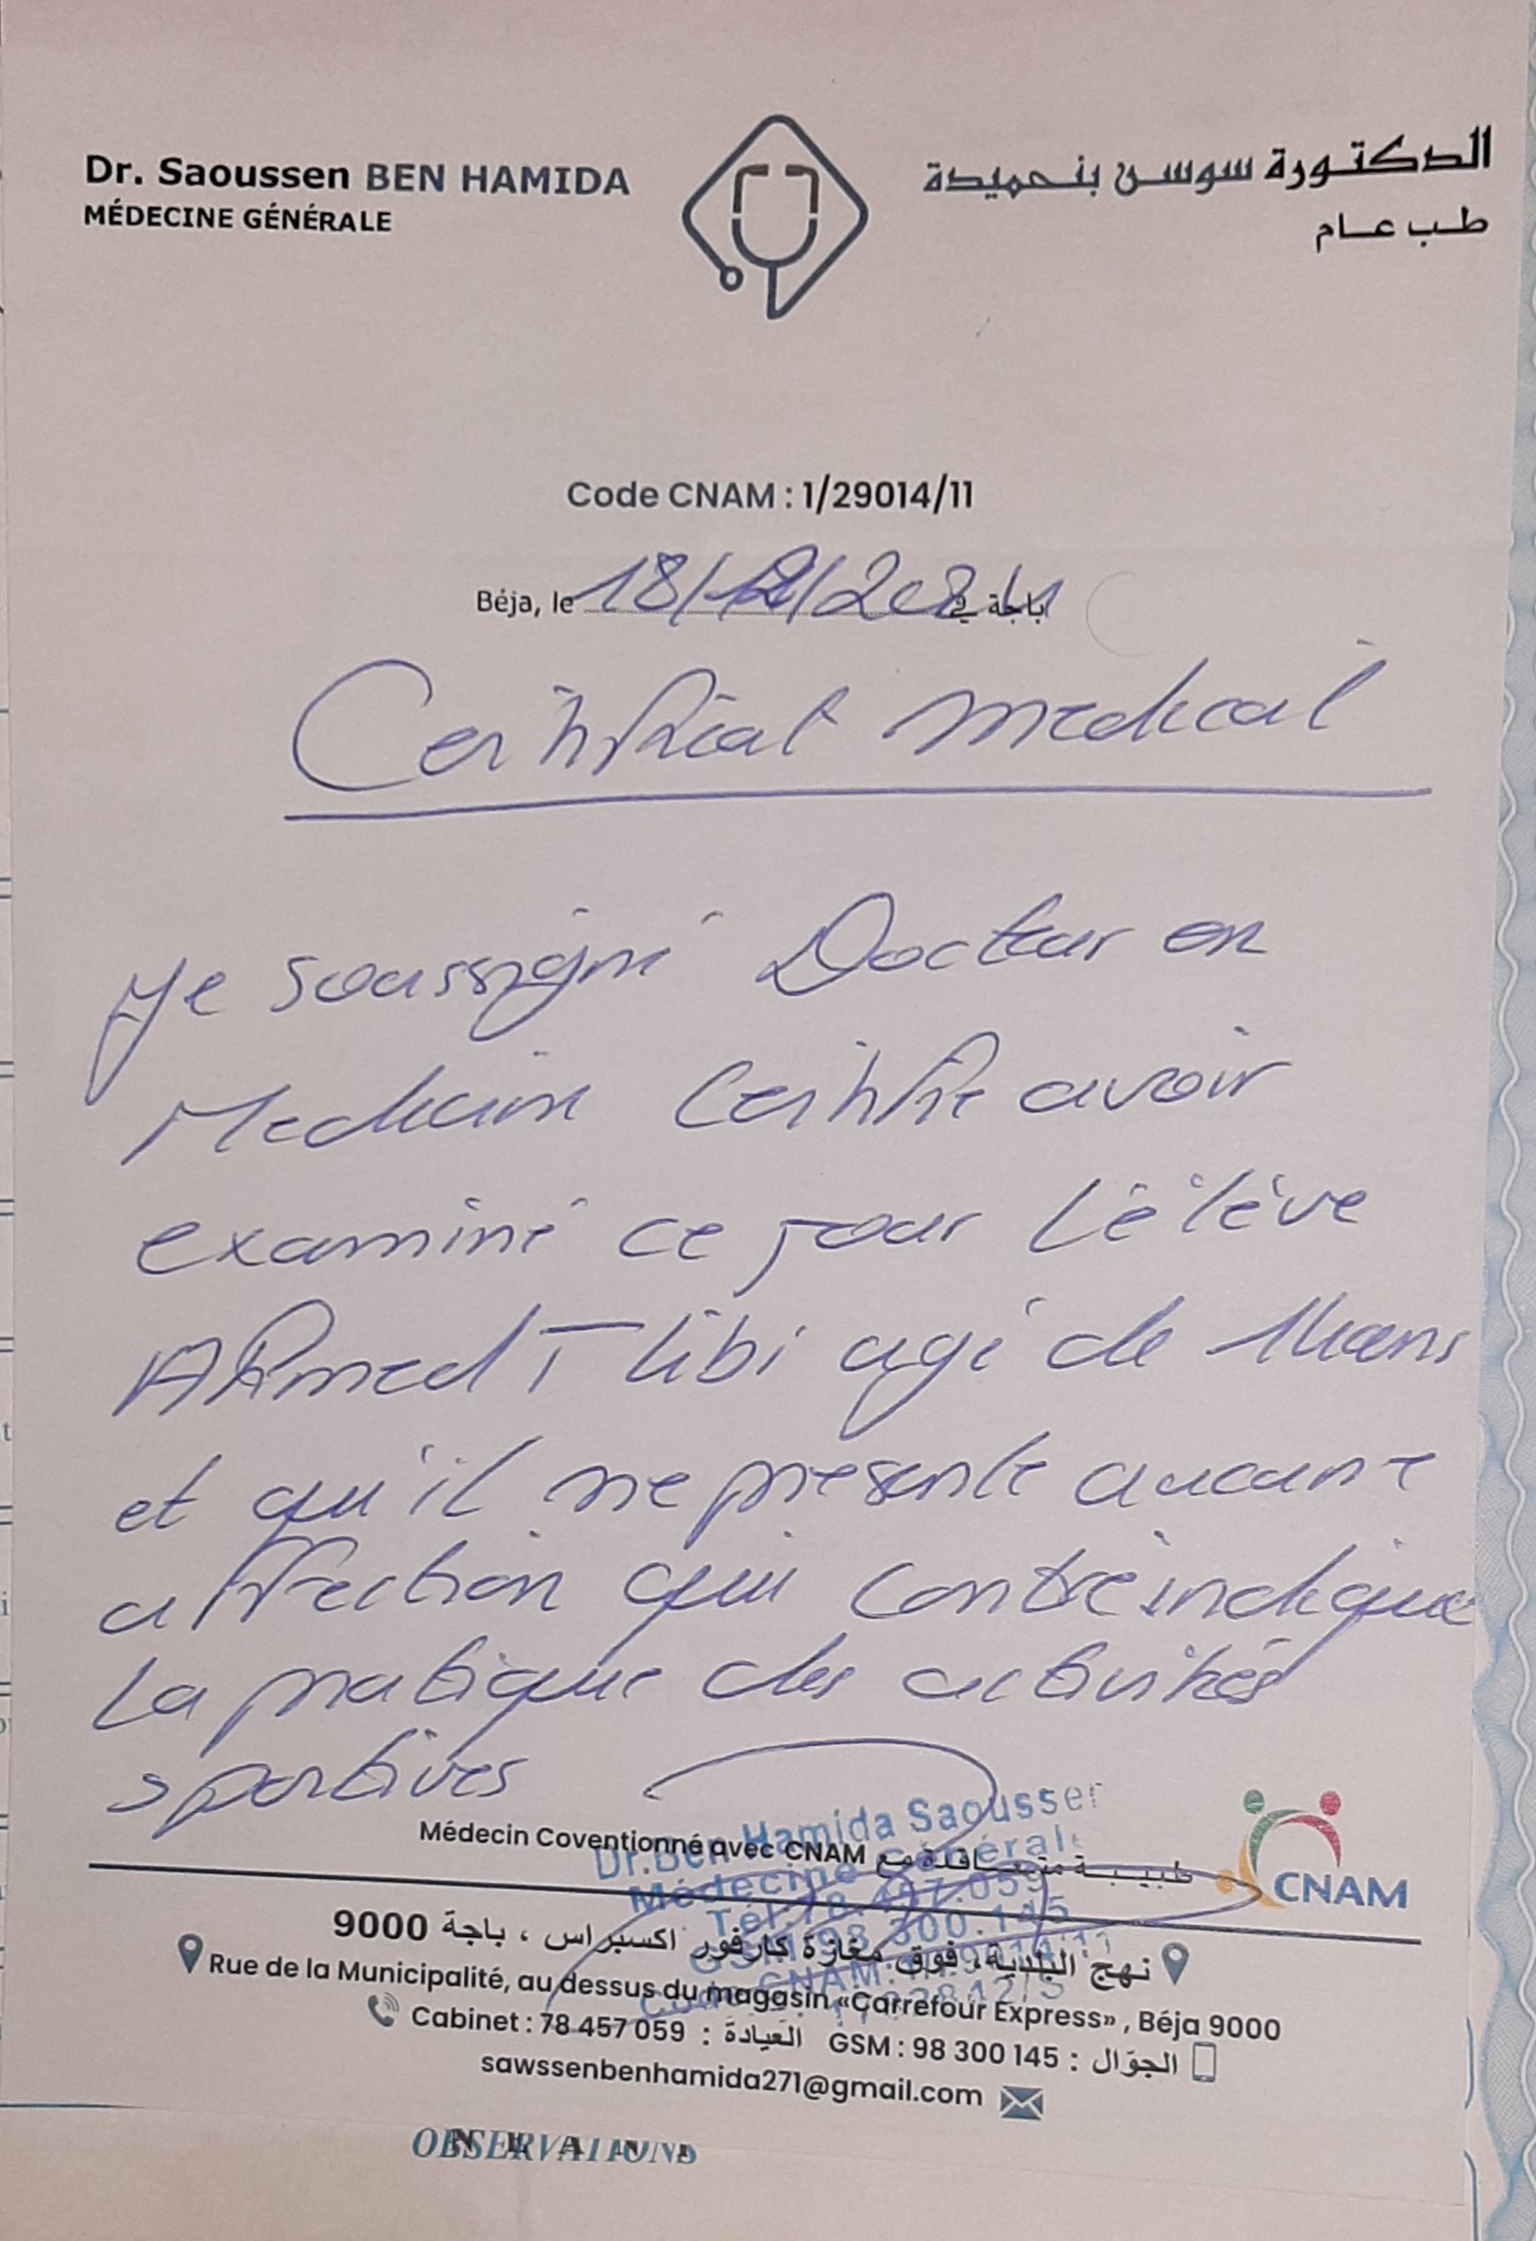 Dr. Saoussen BEN HAMIDA
MÉDECINE GÉNÉRALE
الدكتورة سوسن بنحميدة
طب عام
Code CNAM : 1/29014/11
Béja, le 18/12/2024 باجة في
Certificat medical
Je soussigné Docteur en
Medecine Certifie avoir
examiné ce jour L'élève
Ahmed Tlibi agé de ans
et qu'il ne présente aucune
affection qui contreindique
La pratique des activités
sportives
Dr.Ben Hamida Saoussen
Médecine Générale
Tél:78.457.059
GSM:98.300.145
Code CNAM:
Médecin Coventionné avec CNAM طبيبة متعاقدة مع
CNAM
نهج البلدية، فوق مغازة كارفور اكسبراس ، باجة 9000
Rue de la Municipalité, au dessus du magasin «Carrefour Express» , Béja 9000
Cabinet : 78 457 059 : العيادة GSM : 98 300 145 : الجوّال
sawssenbenhamida271@gmail.com
OBSERVATIONS